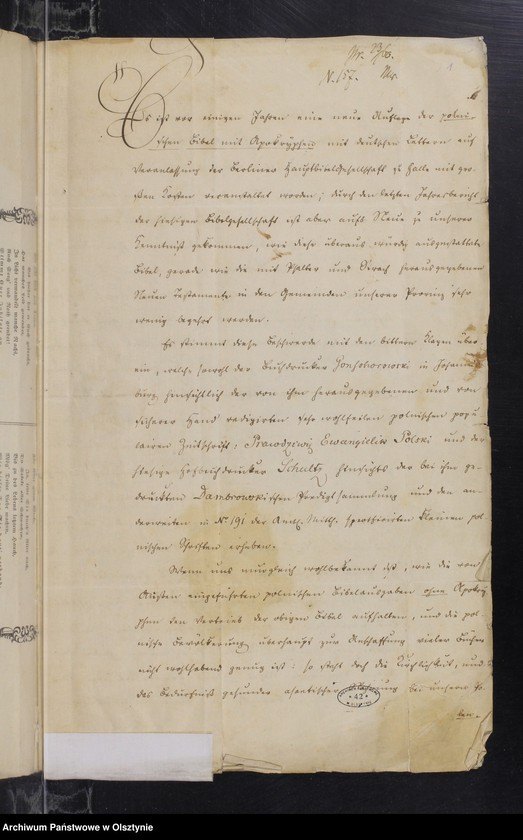 Nr.
N. 157.
Es ist vor einigen Jahren eine neue Auflage der polni-
schen Bibel mit Apokryphen mit deutschen Lettern auf
Veranlassung der Berliner Hauptbibelgesellschaft zu Halle mit gro-
ßen Kosten veranstaltet worden; durch den letzten Jahresbericht
der hiesigen Bibelgesellschaft ist aber aufs Neue zu unserer
Kenntniß gekommen, wie diese überaus würdig ausgestattete
Bibel, gerade wie die mit Psalter und Sirach herausgegebenen
Neuen Testamente in den Gemeinden unserer Provinz sehr
wenig begehrt werden.
Es stimmt diese Beschwerde mit den bittern Klagen über-
ein, welche sowohl der Buchdrucker Gonschorowski in Johannis-
burg hinsichtlich der von ihm herausgegebenen und von
sicherer Hand redigirten sehr wohlfeilen polnischen popu-
lairen Zeitschrift: Prawdziwy Ewangielik Polski und der
hiesige Hofbuchdrucker Schultz hinsichts der bei ihm ge-
druckten Dambrowskischen Predigtsammlung und den an-
derweiten in Nr. 191 der Amtl. Mitth. specificirten kleinen pol-
nischen Schriften erheben.
Wenn uns nun gleich wohlbekannt ist, wie die von
Außen eingeführten polnischen Bibelausgaben ohne Apokry-
phen den Vertrieb der obigen Bibel aufhalten, und die pol-
nische Bevölkerung überhaupt zur Anschaffung vieler Bücher
nicht wohlhabend genug ist: so steht doch die Kirchlichkeit, und
das Bedürfniß gesunder ascetischer Nahrung bei unsern
42
Archiwum Państwowe w Olsztynie